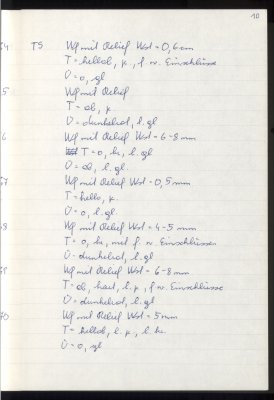 10
TS Wf mit Relief Wst = 0,6 cm
T = hellob, k, f w. Einschlüsse
Ü = o, gl
5 Wf mit Relief
T = ob, k.
Ü = dunkelrot, l. gl
6 Wf mit Relief Wst = 6-8 mm
T = o, hr, l. gl
Ü = ob, l. gl.
Wf mit Relief Wst = 0,5 mm
T = hello, k.
Ü = o, l. gl.
8 Wf mit Relief Wst = 4-5 mm
T = o, hr, mit f. w. Einschlüssen
Ü = dunkelrot, l. gl
Wf mit Relief Wst = 6-8 mm
T = ob, hart, l. k, f w. Einschlüsse
Ü = dunkelrot, l. gl
70 Wf mit Relief Wst = 5 mm
T = hellob, l. k, l. hr.
Ü = o, gl